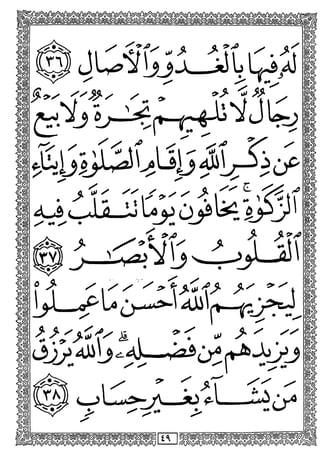 لَهُۥ فِيهَا بِٱلْغُدُوِّ وَٱلْأَصَالِ ٣٦
رِجَالٌ لَّا تُلْهِيهِمْ تِجَٰرَةٌ وَلَا بَيْعٌ
عَن ذِكْرِ ٱللَّهِ وَإِقَامِ ٱلصَّلَوٰةِ وَإِيتَآءِ
ٱلزَّكَوٰةِ ۙ يَخَافُونَ يَوْمًا تَتَقَلَّبُ فِيهِ
ٱلْقُلُوبُ وَٱلْأَبْصَٰرُ ٣٧
لِيَجْزِيَهُمُ ٱللَّهُ أَحْسَنَ مَا عَمِلُوا۟
وَيَزِيدَهُم مِّن فَضْلِهِۦ ۗ وَٱللَّهُ يَرْزُقُ
مَن يَشَآءُ بِغَيْرِ حِسَابٍ ٣٨
٤٩